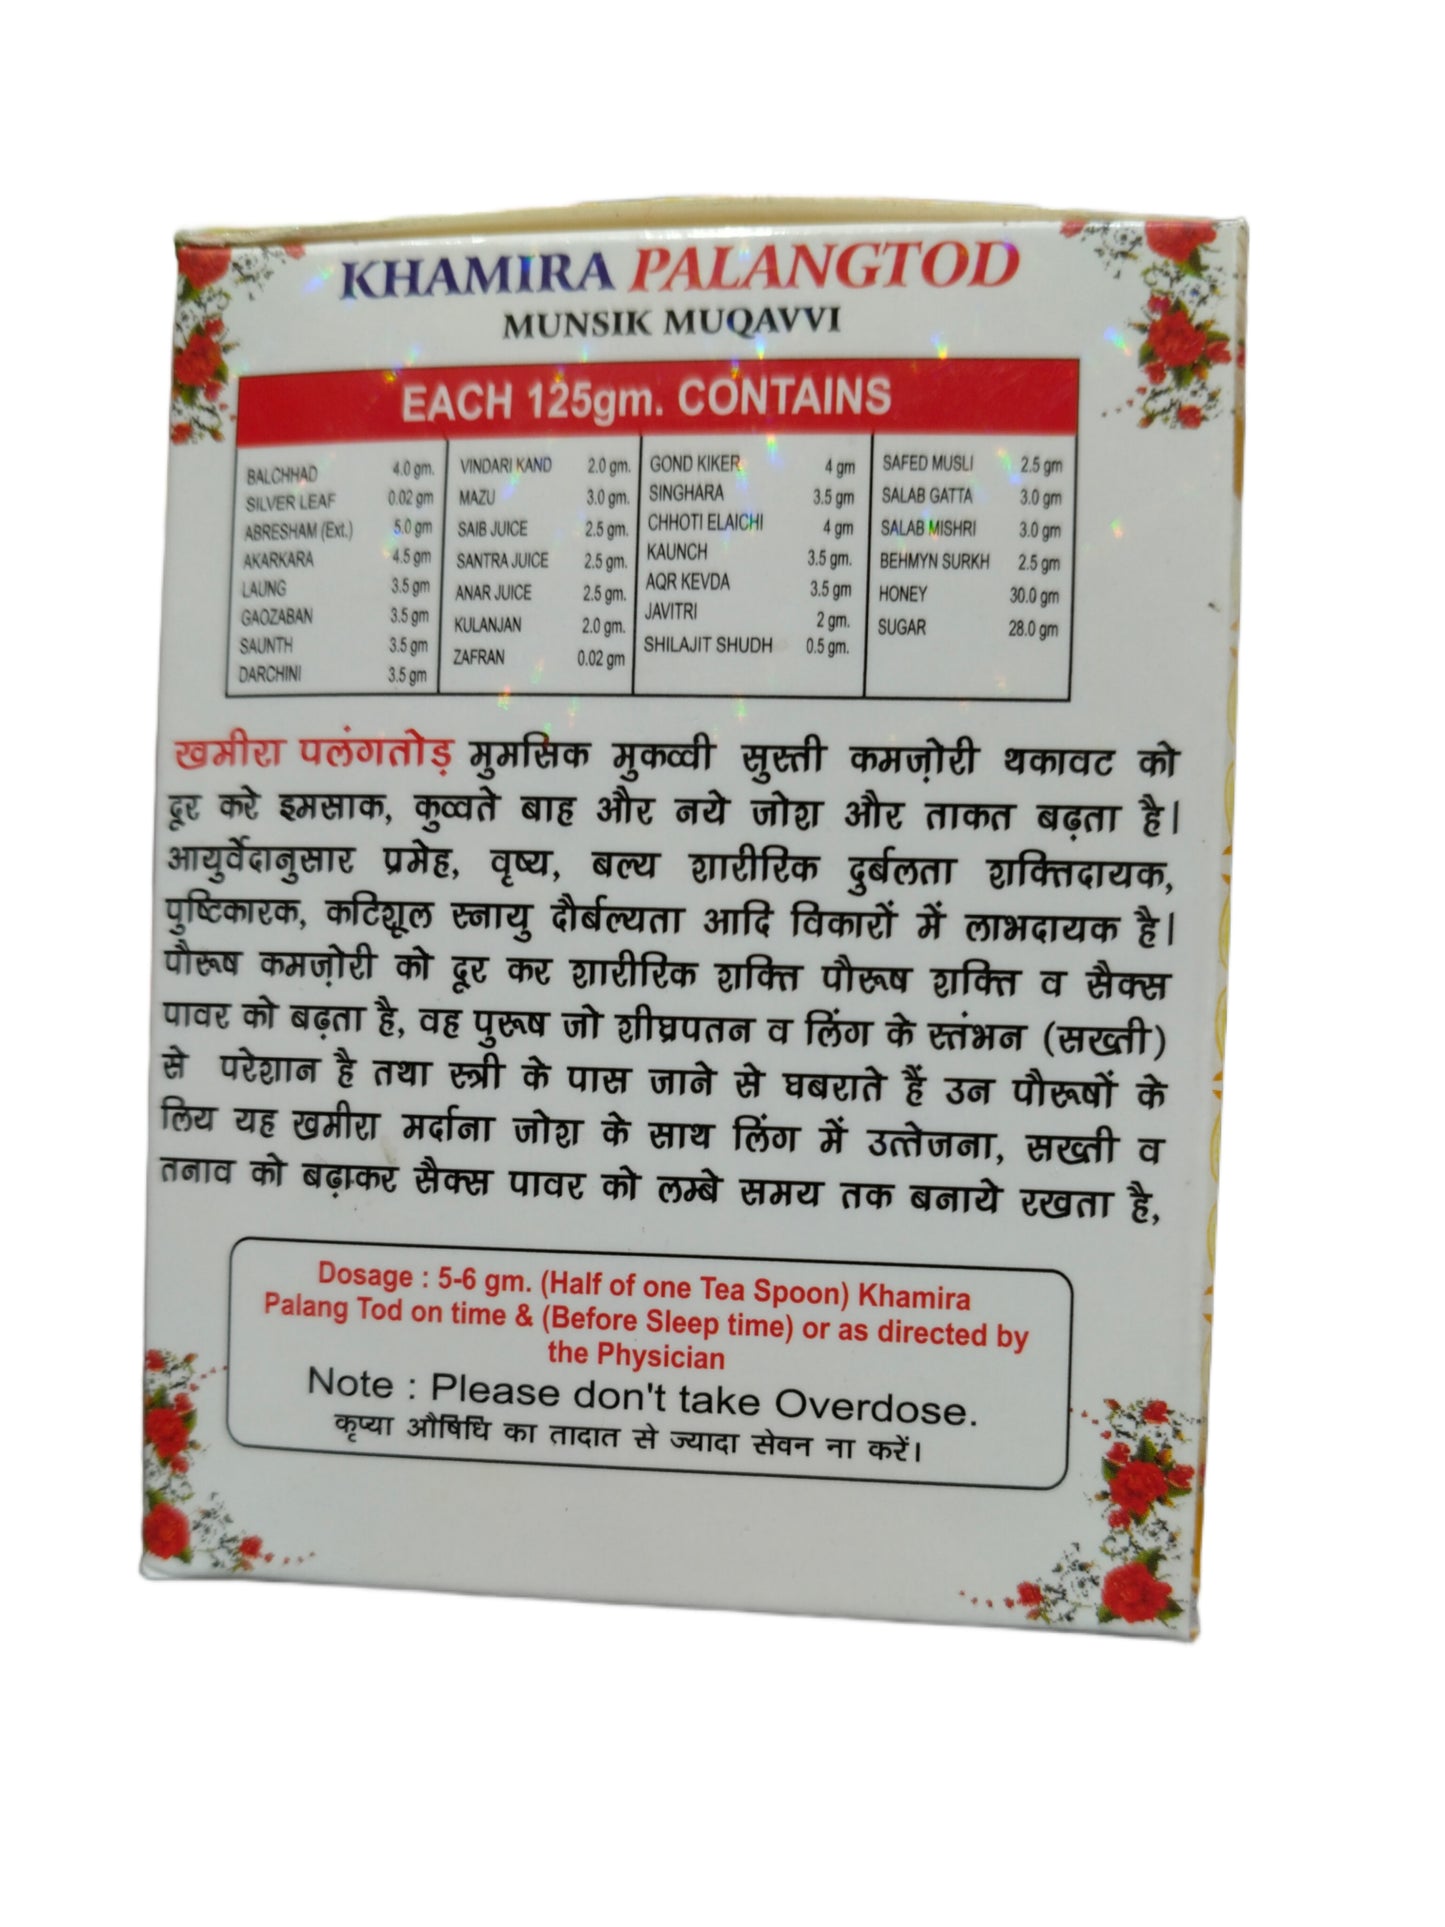 KHAMIRA PALANGTOD
MUNSIK MUQAVVI
EACH 125gm. CONTAINS
BALCHHAD 4.0 gm.
SILVER LEAF 0.02 gm
ABRESHAM (Ext.) 5.0 gm
AKARKARA 4.5 gm
LAUNG 3.5 gm
GAOZABAN 3.5 gm
SAUNTH 3.5 gm
DARCHINI 3.5 gm
VINDARI KAND 2.0 gm.
MAZU 3.0 gm.
SAIB JUICE 2.5 gm.
SANTRA JUICE 2.5 gm.
ANAR JUICE 2.5 gm.
KULANJAN 2.0 gm.
ZAFRAN 0.02 gm
GOND KIKER 4 gm
SINGHARA 3.5 gm
CHHOTI ELAICHI 4 gm
KAUNCH 3.5 gm.
AQR KEVDA 3.5 gm
JAVITRI 2 gm.
SHILAJIT SHUDH 0.5 gm.
SAFED MUSLI 2.5 gm
SALAB GATTA 3.0 gm
SALAB MISHRI 3.0 gm
BEHMYN SURKH 2.5 gm
HONEY 30.0 gm
SUGAR 28.0 gm
खमीरा पलंगतोड़ मुमसिक मुकव्वी सुस्ती कमज़ोरी थकावट को
दूर करे इमसाक, कुव्वते बाह और नये जोश और ताकत बढ़ता है।
आयुर्वेदानुसार प्रमेह, वृष्य, बल्य शारीरिक दुर्बलता शक्तिदायक,
पुष्टिकारक, कटिशूल स्नायु दौर्बल्यता आदि विकारों में लाभदायक है।
पौरूष कमज़ोरी को दूर कर शारीरिक शक्ति पौरूष शक्ति व सैक्स
पावर को बढ़ता है, वह पुरूष जो शीघ्रपतन व लिंग के स्तंभन (सख्ती)
से परेशान है तथा स्त्री के पास जाने से घबराते हैं उन पौरूषों के
लिय यह खमीरा मर्दाना जोश के साथ लिंग में उत्तेजना, सख्ती व
तनाव को बढ़ाकर सैक्स पावर को लम्बे समय तक बनाये रखता है,
Dosage : 5-6 gm. (Half of one Tea Spoon) Khamira
Palang Tod on time & (Before Sleep time) or as directed by
the Physician
Note : Please don't take Overdose.
कृप्या औषिधि का तादात से ज्यादा सेवन ना करें।